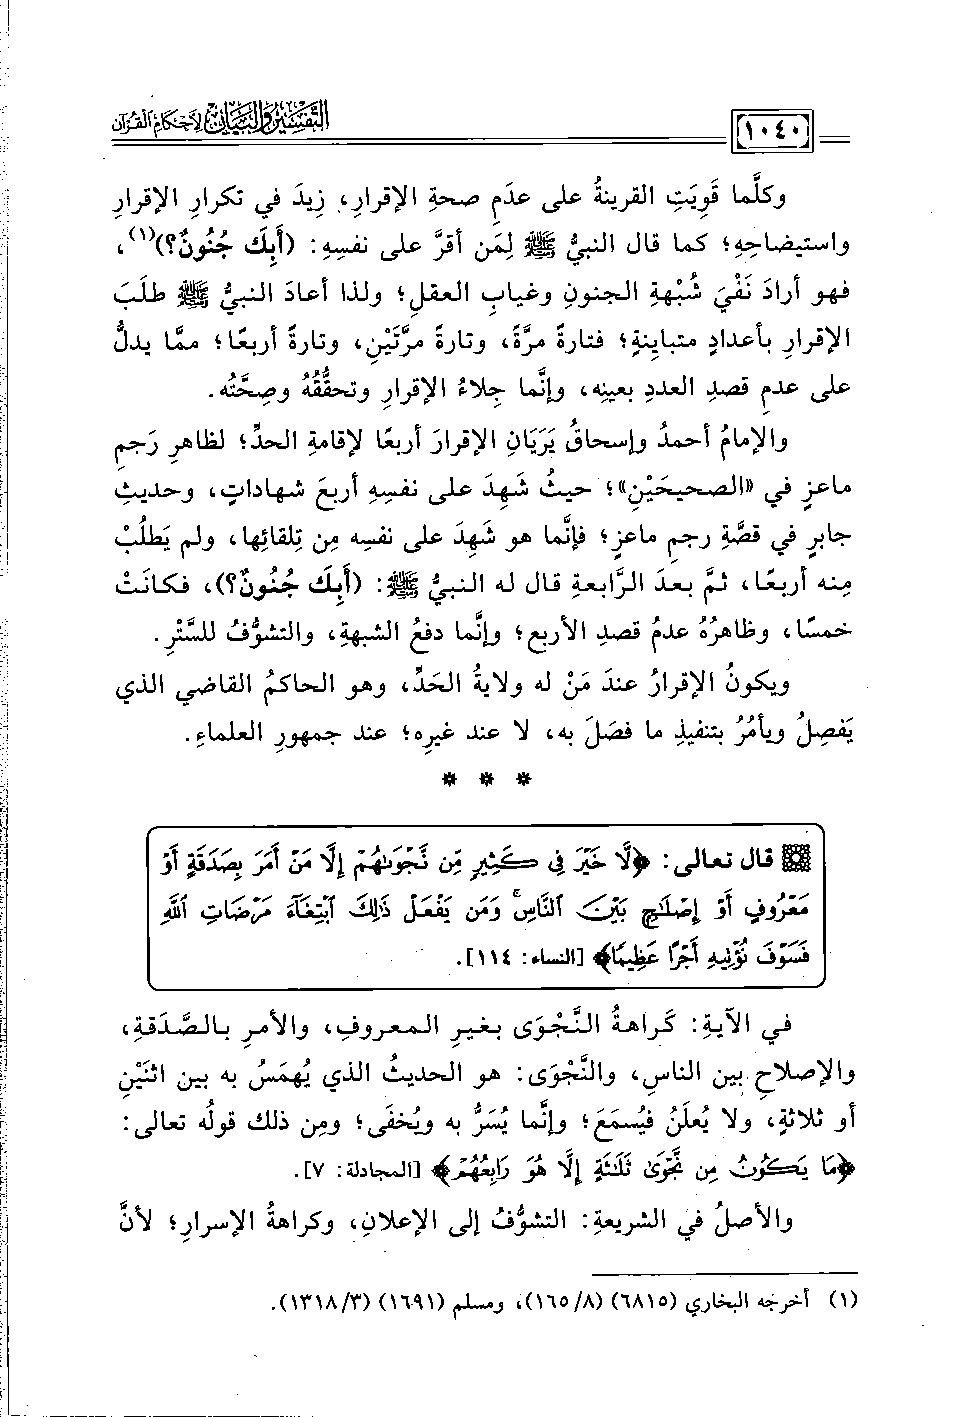 ١٠٤٠
التفسير والبيان لأحكام القرآن
وكلَّما قَوِيَتِ القرينةُ على عدَمِ صحةِ الإقرارِ، زِيدَ في تكرارِ الإقرارِ
واستيضاحِهِ؛ كما قال النبيُّ ﷺ لِمَن أقرَّ على نفسِهِ: (أَبِكَ جُنُونٌ؟)(١)،
فهو أرادَ نَفْيَ شُبْهةِ الجنونِ وغيابِ العقلِ؛ ولذا أعادَ النبيُّ ﷺ طلَبَ
الإقرارِ بأعدادٍ متباينةٍ؛ فتارةً مرَّةً، وتارةً مرَّتَيْنِ، وتارةً أربعًا؛ ممَّا يدلُّ
على عدمِ قصدِ العددِ بعينِه، وإنَّما جِلاءُ الإقرارِ وتحقُّقُهُ وصِحَّتُه.
والإمامُ أحمدُ وإسحاقُ يَرَيَانِ الإقرارَ أربعًا لإقامةِ الحدِّ؛ لظاهرِ رَجمِ
ماعزٍ في «الصحيحَيْنِ»؛ حيثُ شَهِدَ على نفسِهِ أربَعَ شهاداتٍ، وحديثِ
جابرٍ في قصَّةِ رجمِ ماعزٍ؛ فإنَّما هو شَهِدَ على نفسِه مِن تِلقائِها، ولم يَطلُبْ
مِنه أربعًا، ثمَّ بعدَ الرَّابعةِ قال له النبيُّ ﷺ: (أَبِكَ جُنُونٌ؟)، فكانَتْ
خمسًا، وظاهرُهُ عدمُ قصدِ الأربعِ؛ وإنَّما دفعُ الشبهةِ، والتشوُّفُ للسَّتْرِ.
ويكونُ الإقرارُ عندَ مَنْ له ولايةُ الحَدِّ، وهو الحاكمُ القاضي الذي
يَفصِلُ ويأمُرُ بتنفيذِ ما فصَلَ به، لا عند غيرِه؛ عند جمهورِ العلماءِ.
* * *
قال تعالى: ﴿لَّا خَيْرَ فِي كَثِيرٍ مِّن نَّجْوَىٰهُمْ إِلَّا مَنْ أَمَرَ بِصَدَقَةٍ أَوْ
مَعْرُوفٍ أَوْ إِصْلَٰحٍ بَيْنَ ٱلنَّاسِ ۚ وَمَن يَفْعَلْ ذَٰلِكَ ٱبْتِغَآءَ مَرْضَاتِ ٱللَّهِ
فَسَوْفَ نُؤْتِيهِ أَجْرًا عَظِيمًا﴾ [النساء: ١١٤].
في الآيةِ: كَراهةُ النَّجْوَى بغيرِ المعروفِ، والأمرِ بالصَّدَقةِ،
والإصلاحِ بين الناسِ، والنَّجْوَى: هو الحديثُ الذي يُهمَسُ به بين اثنَيْنِ
أو ثلاثةٍ، ولا يُعلَنُ فيُسمَعَ؛ وإنَّما يُسَرُّ به ويُخفَى؛ ومِن ذلك قولُه تعالى:
﴿مَا يَكُونُ مِن نَّجْوَىٰ ثَلَٰثَةٍ إِلَّا هُوَ رَابِعُهُمْ﴾ [المجادلة: ٧].
والأصلُ في الشريعةِ: التشوُّفُ إلى الإعلانِ، وكراهةُ الإسرارِ؛ لأنَّ
(١) أخرجه البخاري (٦٨١٥) (٨/ ١٦٥)، ومسلم (١٦٩١) (٣/ ١٣١٨).